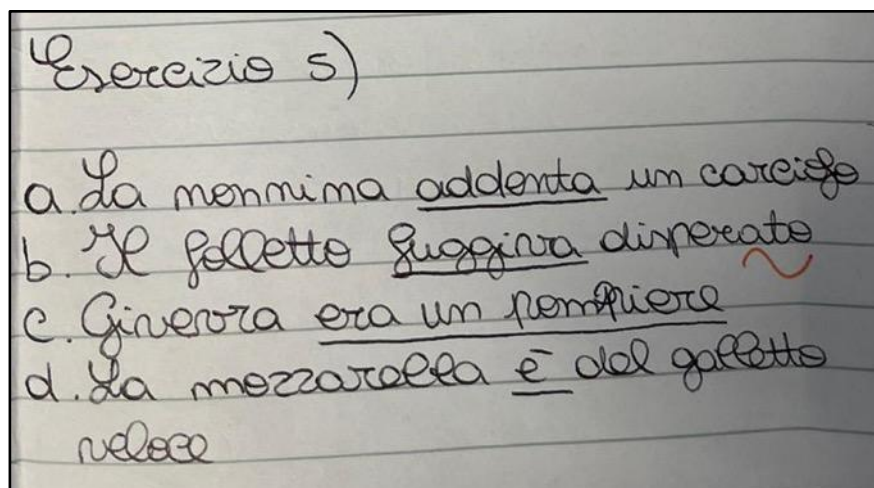 Esercizio 5)
a. La nonnina addenta un carciofo
b. Il folletto fuggiva disperato
c. Ginevra era un pompiere
d. La mozzarella è del galletto
veloce